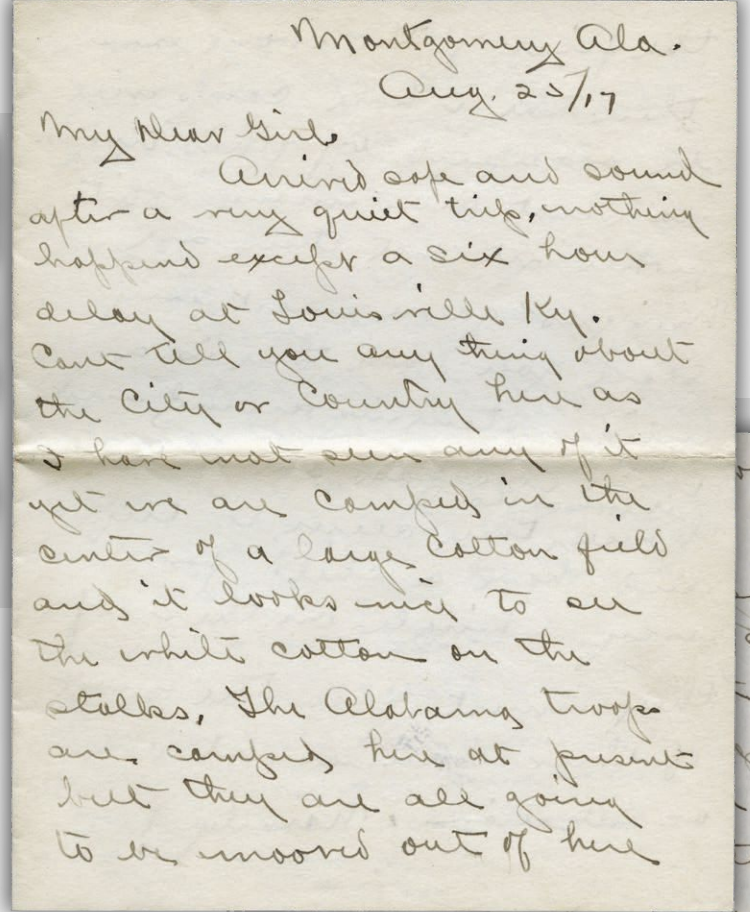 Montgomery Ala.
Aug. 25/17
My Dear Girl.
Arrived safe and sound
after a very quiet trip, nothing
happend except a six hour
delay at Louisville Ky.
Cant tell you any thing about
the City or Country here as
I have not seen any of it
yet we are camped in the
center of a large Cotton field
and it looks nice to see
the white cotton on the
stalks. The Alabama troops
are camped here at present
but they are all going
to be mooved out of here